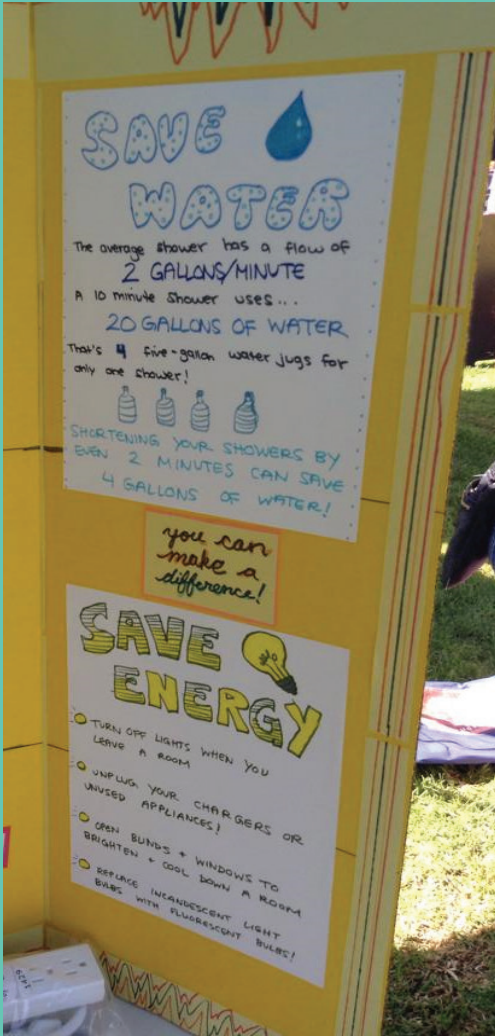 SAVE
WATER
The average shower has a flow of
2 GALLONS/MINUTE
A 10 minute shower uses...
20 GALLONS OF WATER
That's 4 five-gallon water jugs for
only one shower!
SHORTENING YOUR SHOWERS BY
EVEN 2 MINUTES CAN SAVE
4 GALLONS OF WATER!
you can
make a
difference!
SAVE
ENERGY
TURN OFF LIGHTS WHEN YOU
LEAVE A ROOM
UNPLUG YOUR CHARGERS OR
UNUSED APPLIANCES!
OPEN BLINDS + WINDOWS TO
BRIGHTEN + COOL DOWN A ROOM
REPLACE INCANDESCENT LIGHT
BULBS WITH FLUORESCENT BULBS!